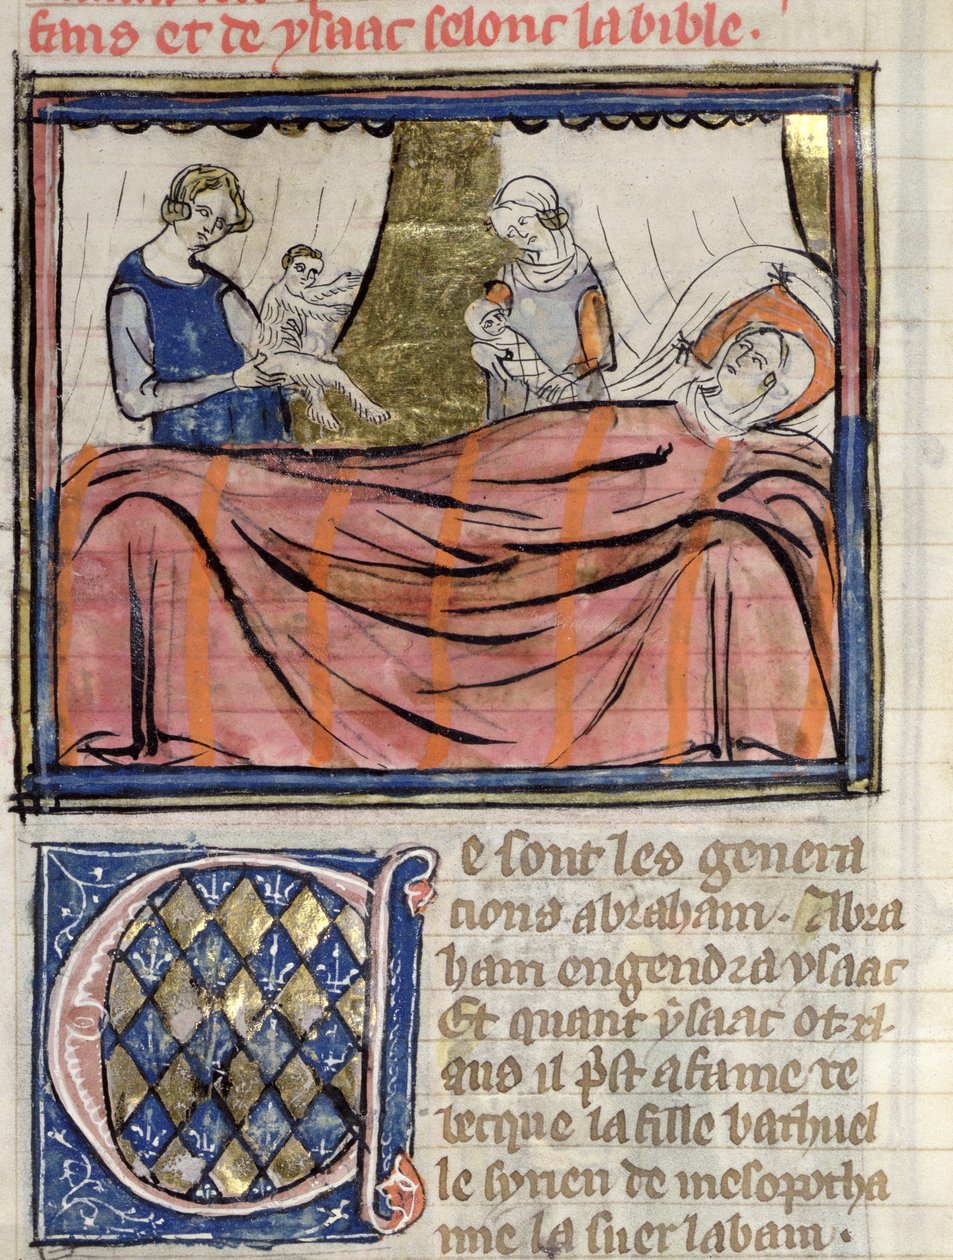 fans et de ysaac selonc la bible.
Ce sont les genera
cions abraham. Abra
ham engendra ysaac
Et quant ysaac ot .xl.
ans il p̄st a fame re
becque la fille bathuel
le syrien de mesopotha
mie la suer labam.